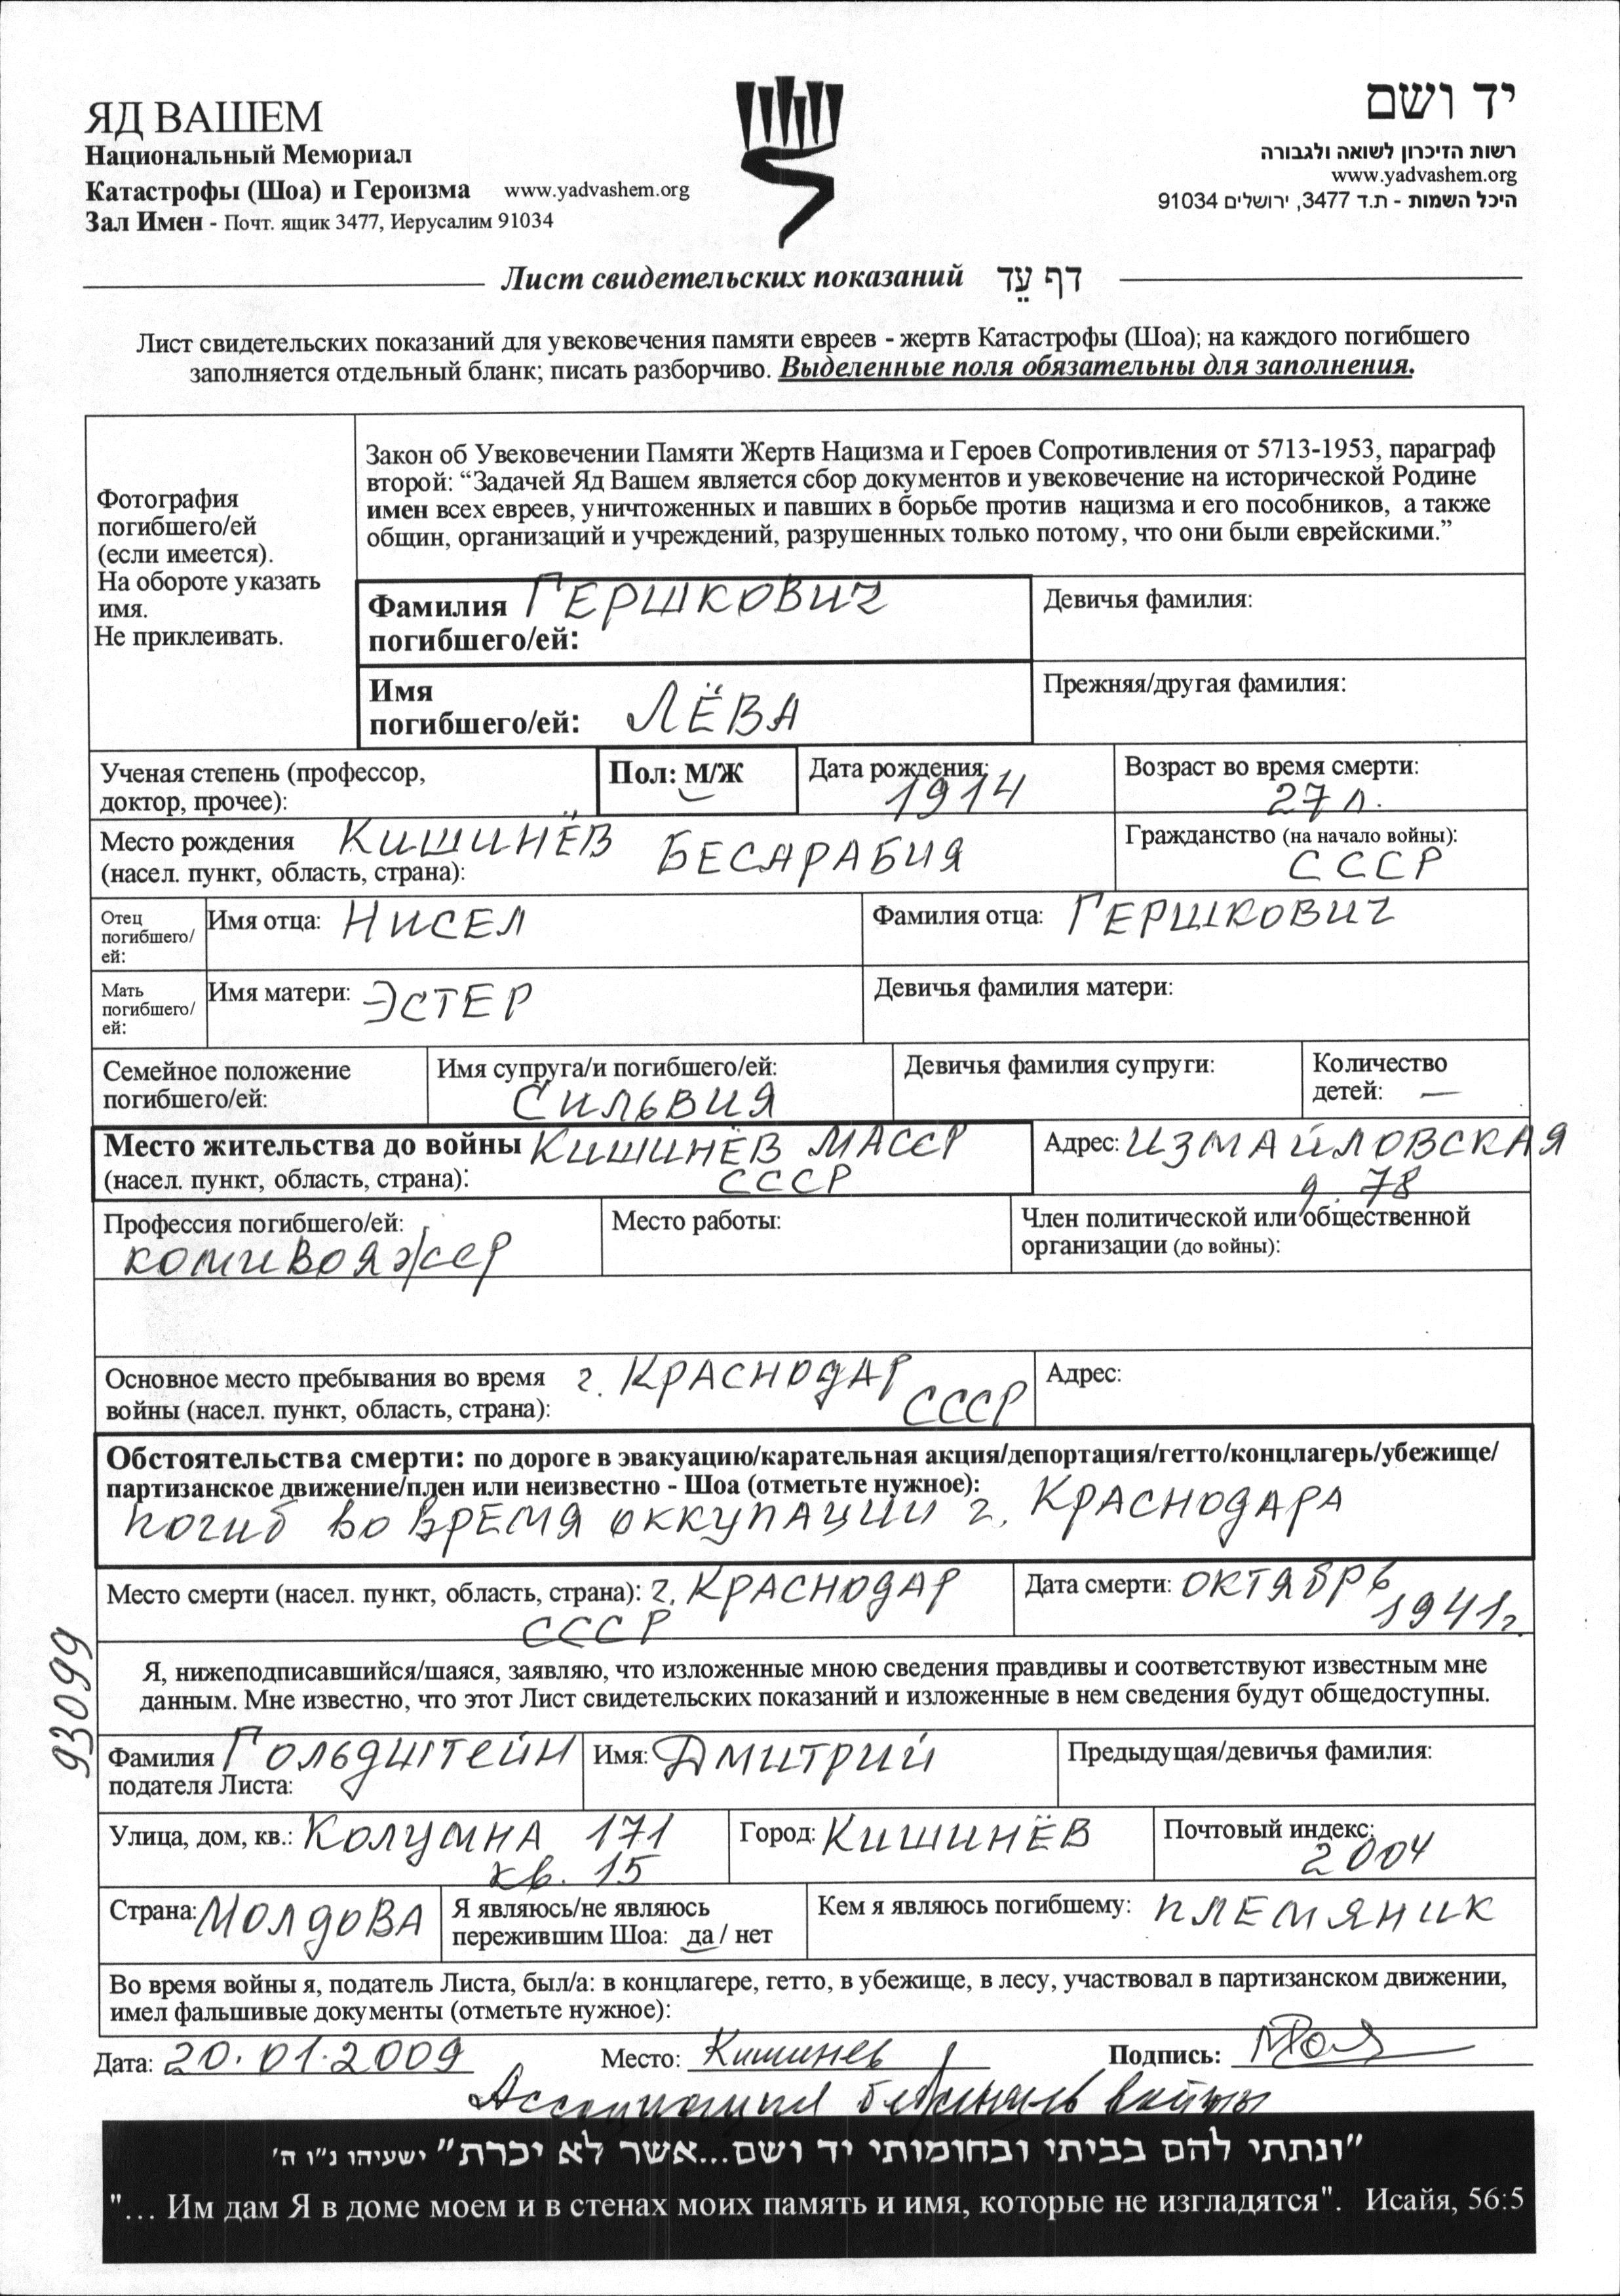 ЯД ВАШЕМ
Национальный Мемориал
Катастрофы (Шоа) и Героизма www.yadvashem.org
Зал Имен - Почт. ящик 3477, Иерусалим 91034
יד ושם
רשות הזיכרון לשואה ולגבורה
www.yadvashem.org
היכל השמות - ת.ד 3477, ירושלים 91034
Лист свидетельских показаний דף עֵד
Лист свидетельских показаний для увековечения памяти евреев - жертв Катастрофы (Шоа); на каждого погибшего
заполняется отдельный бланк; писать разборчиво. Выделенные поля обязательны для заполнения.
Фотография
погибшего/ей
(если имеется).
На обороте указать
имя.
Не приклеивать.
Закон об Увековечении Памяти Жертв Нацизма и Героев Сопротивления от 5713-1953, параграф
второй: “Задачей Яд Вашем является сбор документов и увековечение на исторической Родине
имен всех евреев, уничтоженных и павших в борьбе против нацизма и его пособников, а также
общин, организаций и учреждений, разрушенных только потому, что они были еврейскими.”
Фамилия ГЕРШКОВИЧ
погибшего/ей:
Девичья фамилия:
Имя
погибшего/ей: ЛЁВА
Прежняя/другая фамилия:
Ученая степень (профессор,
доктор, прочее):
Пол: М/Ж
Дата рождения:
1914
Возраст во время смерти:
27 л.
Место рождения КИШИНЁВ БЕСАРАБИЯ
(насел. пункт, область, страна):
Гражданство (на начало войны):
СССР
Отец
погибшего/
ей:
Имя отца: НИСЕЛ
Фамилия отца: ГЕРШКОВИЧ
Мать
погибшего/
ей:
Имя матери: ЭСТЕР
Девичья фамилия матери:
Семейное положение
погибшего/ей:
Имя супруга/и погибшего/ей:
СИЛЬВИЯ
Девичья фамилия супруги:
Количество
детей: —
Место жительства до войны КИШИНЁВ МАССР
(насел. пункт, область, страна): СССР
Адрес: ИЗМАЙЛОВСКАЯ
д. 78
Профессия погибшего/ей:
комивояжер
Место работы:
Член политической или общественной
организации (до войны):
Основное место пребывания во время г. КРАСНОДАР
войны (насел. пункт, область, страна): СССР
Адрес:
Обстоятельства смерти: по дороге в эвакуацию/карательная акция/депортация/гетто/концлагерь/убежище/
партизанское движение/плен или неизвестно - Шоа (отметьте нужное):
погиб во ВРЕМЯ ОККУПАЦИИ г. КРАСНОДАРА
Место смерти (насел. пункт, область, страна): г. КРАСНОДАР
СССР
Дата смерти: ОКТЯБРЬ
1941г.
Я, нижеподписавшийся/шаяся, заявляю, что изложенные мною сведения правдивы и соответствуют известным мне
данным. Мне известно, что этот Лист свидетельских показаний и изложенные в нем сведения будут общедоступны.
93099
Фамилия ГОЛЬДШТЕЙН
подателя Листа:
Имя: ДМИТРИЙ
Предыдущая/девичья фамилия:
Улица, дом, кв.: КОЛУМНА 171
кв. 15
Город: КИШИНЁВ
Почтовый индекс:
2004
Страна: МОЛДОВА
Я являюсь/не являюсь
пережившим Шоа: да / нет
Кем я являюсь погибшему: ПЛЕМЯНИК
Во время войны я, податель Листа, был/а: в концлагере, гетто, в убежище, в лесу, участвовал в партизанском движении,
имел фальшивые документы (отметьте нужное):
Дата: 20.01.2009 Место: Кишинев Подпись:
Ассоциация войны
"ונתתי להם בביתי ובחומותי יד ושם...אשר לא יכרת" ישעיהו נ"ו ה'
"... Им дам Я в доме моем и в стенах моих память и имя, которые не изгладятся". Исайя, 56:5